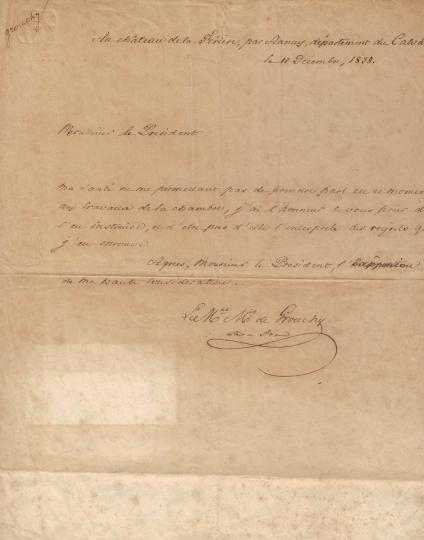 grouchy
Au château de la Ferrière, par Aunay, département du Calvad
le 11 Décembre, 1838.
Monsieur le Président
ma santé ne me permettant pas de prendre part en ce momen
aux travaux de la chambre, j'ai l'honneur de vous prier d
l'en instruire, et d'etre près d'elle l'interprète des regrets q
j'en éprouve
Agréez, Monsieur le Président, l'
de ma haute considération.
Le Mal Mis de Grouchy